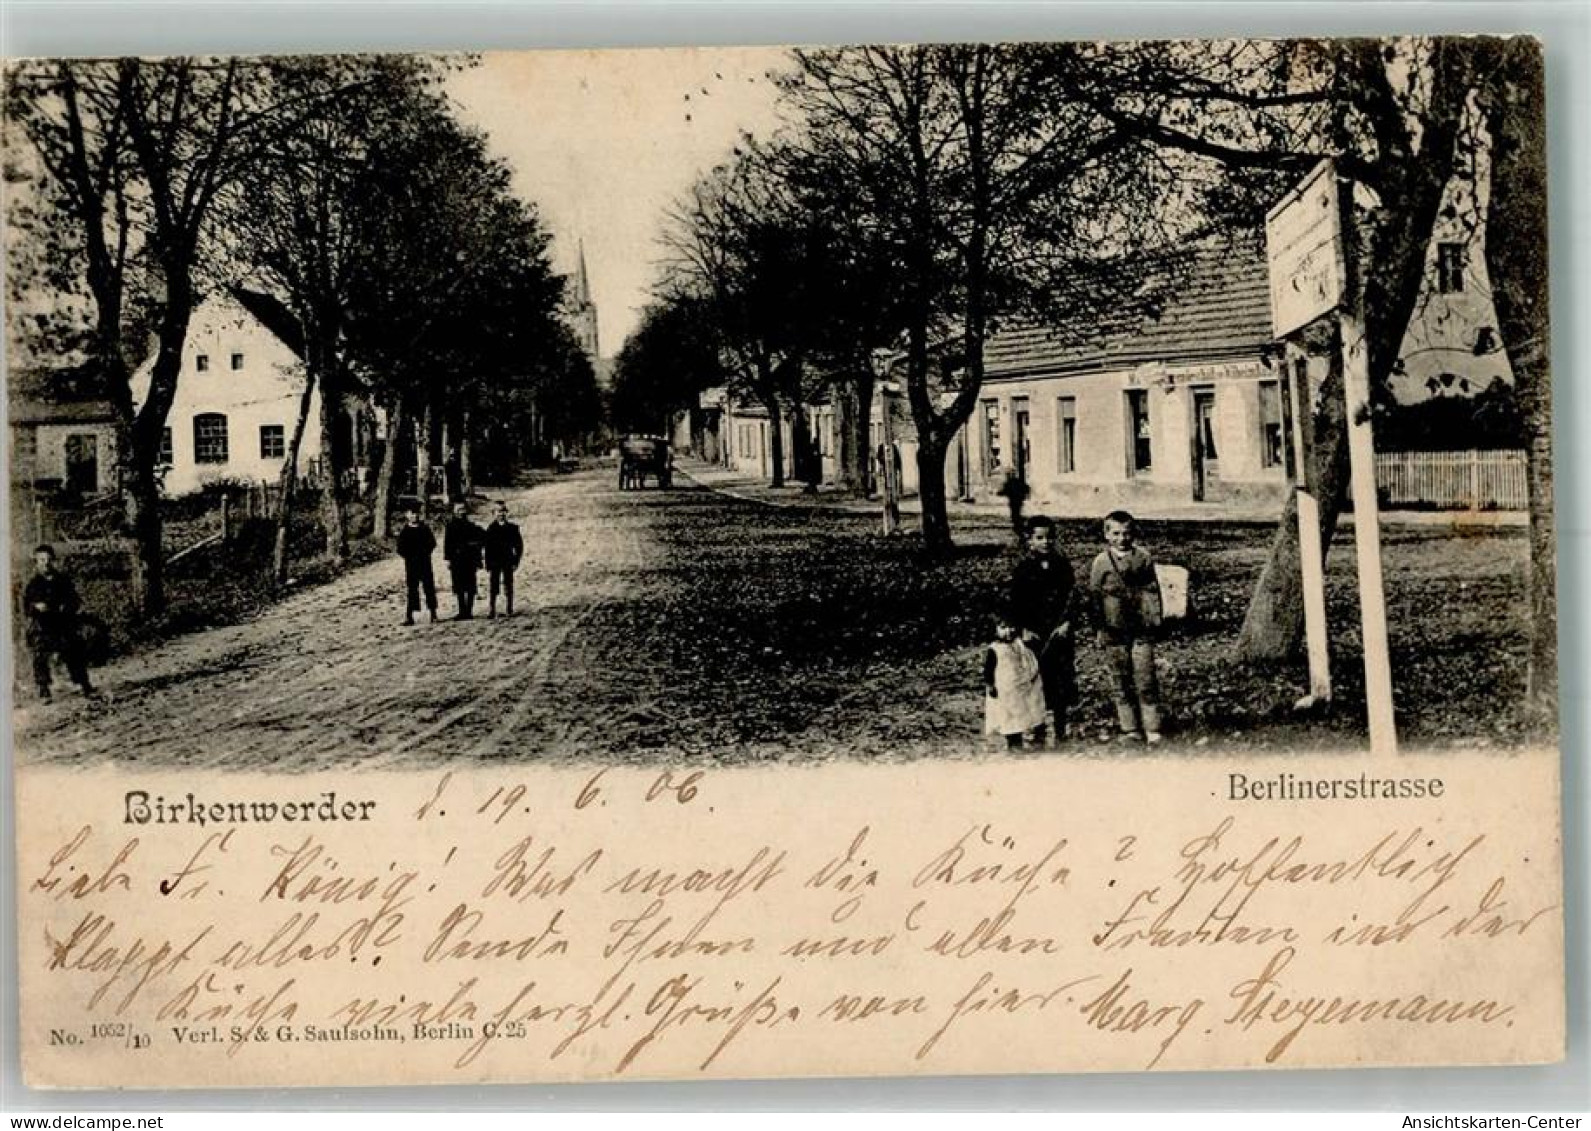 Birkenwerder d. 19. 6. 06.
Berlinerstrasse
Liebe Fr. König! Was macht die Küche? Hoffentlich
klappt alles? Sende Ihnen und allen Frauen in der
Küche viele herzl. Grüße von hier. Marg. Stegemann.
No. 1052/10 Verl. S. & G. Saulsohn, Berlin C. 25
Ansichtskarten-Center